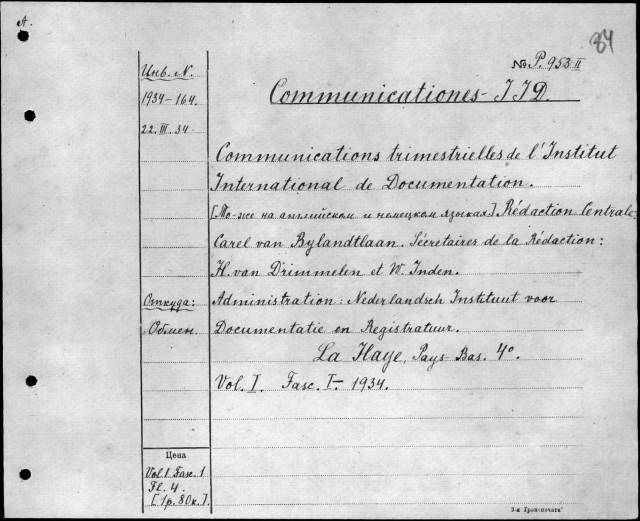 A.
84
№ P. 953 II
Инв. N.
1934-164.
22. III. 34.
Communicationes - IID.
Communications trimestrielles de l'Institut
International de Documentation.
[То-же на английском и немецком языках] Rédaction Centrale:
Carel van Bylandtlaan. Sécretaires de la Rédaction:
H. van Drimmelen et W. Inden.
Откуда:
Обмен.
Administration: Nederlandsch Instituut voor
Documentatie en Registratuur.
La Haye, Pays-Bas. 4°.
Vol. I. Fasc. I - 1934.
Цена
Vol. 1. Fasc. 1
Fl. 4.
[1р. 80к.].